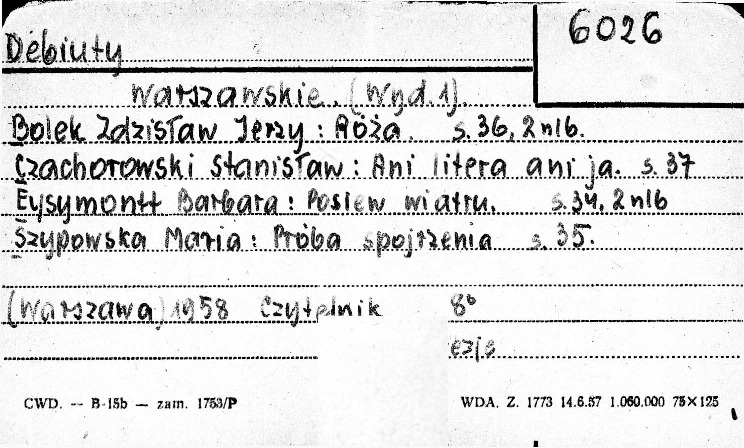 6026
Debiuty
Warszawskie. (Wyd. 1).
Bolek Zdzisław Jerzy : Róża. s. 36, 2 nlb.
Czachorowski Stanisław : Ani litera ani ja. s. 37
Eysymontt Barbara : Posiew wiatru. s. 34, 2 nlb
Szypowska Maria : Próba spojrzenia s. 35.
(Warszawa) 1958 Czytelnik 8°
CWD. — B-15b — zam. 1753/P WDA. Z. 1773 14.6.57 1.060.000 75×125